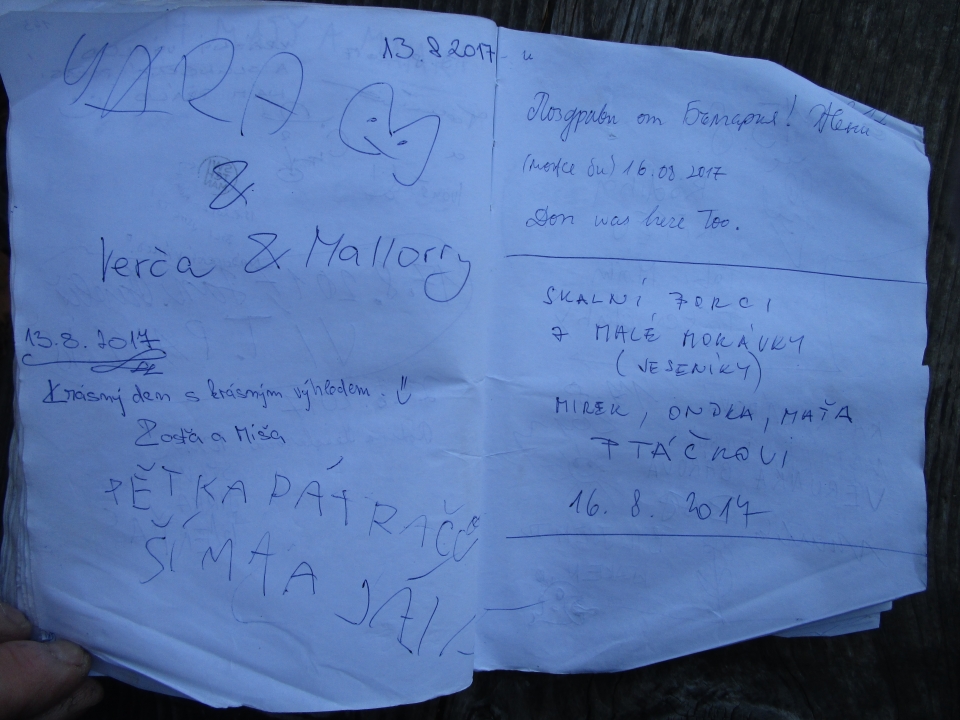 13.8.2017
YARA
&
Verča & Mallorry
13.8.2017
Krásný den s krásným výhledem.
Zosta a Míša
PĚŤKA PÁT RAČŮ
ŠÍMA A
Поздрави от България! Жени
(може би) 16.08.2017
Don was here Too.
SKALNÍ ZORCI
Z MALÉ MORÁVKY
(JESENÍKY)
MIREK, ONDRA, MAŤA
PTÁČKOVI
16. 8. 2017